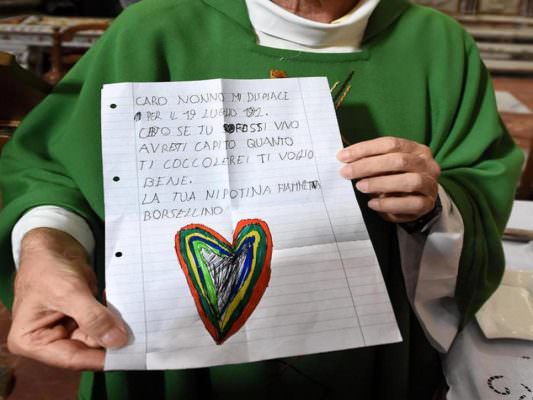 CARO NONNO MI DISPIACE
PER IL 19 LUGLIO 1992.
CERTO SE TU FOSSI VIVO
AVRESTI CAPITO QUANTO
TI COCCOLEREI TI VOGLIO
BENE.
LA TUA NIPOTINA FIAMMETTA
BORSELLINO